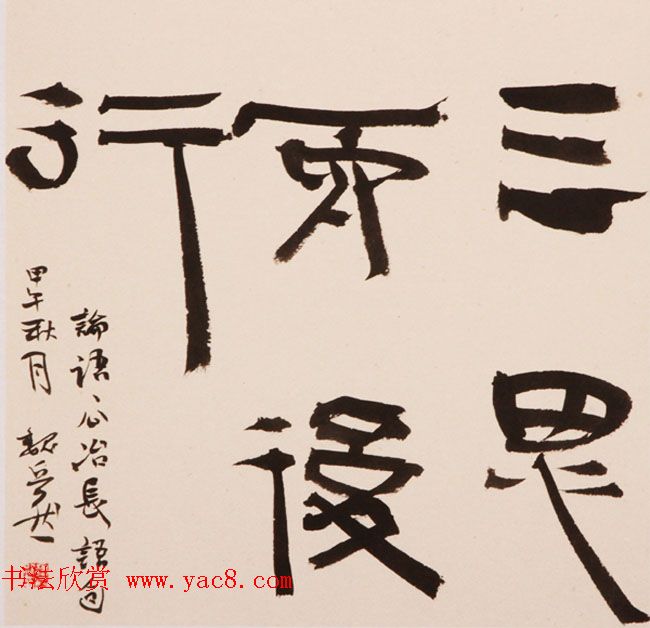 三思
而後
行
論語、公冶長 語句
甲午秋月 魏
书法欣赏 www.yac8.com